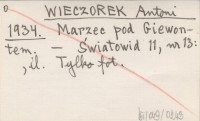 WIECZOREK Antoni
1934. Marzec pod Giewon-
tem. — Światowid 11, nr 13:
, il. Tylko fot.